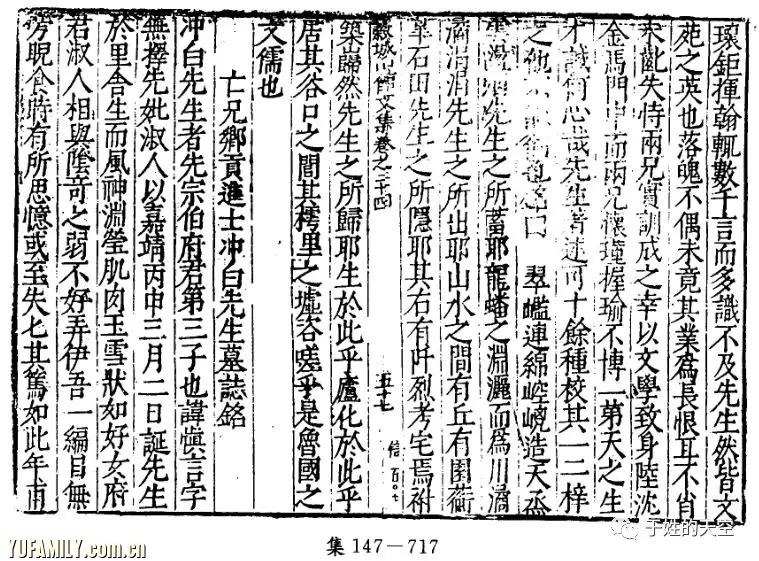 瓌鉅揮翰輒數千言而多識不及先生然皆文
苑之英也落魄不偶未竟其業爲長恨耳不肖
未齔失恃兩兄實訓成之幸以文學致身陸沈
金馬門中而兩兄懷瑾握瑜不博一第天之生
才誠何心哉先生著述可十餘種校其一二梓
之他 曰 翠巘連綿崆 造天
先生之所蓄耶龍蟠之淵灑而爲川潏
潏涓涓先生之所出耶山水之間有丘有園蘅
皐石田先生之所隱耶其右有阡烈考宅焉祔
穀城山館文集卷之二十四
五十七
信 百〇七
築巋然先生之所歸耶生於此乎廬化於此乎
居其谷口之間其樗里之墟谷嗟乎是魯國之
文儒也
亡兄鄉貢進士冲白先生墓誌銘
冲白先生者先宗伯府君第三子也諱愼言字
無擇先妣淑人以嘉靖丙申三月二日誕先生
於里舍生而風神淵瑩肌肉玉雪狀如好女府
君淑人相與陰奇之弱不好弄伊吾一編目無
旁睨食時有所思憶或至失匕其篤如此年甫
集 147－717
YUFAMILY.com.cn
于姓的天空